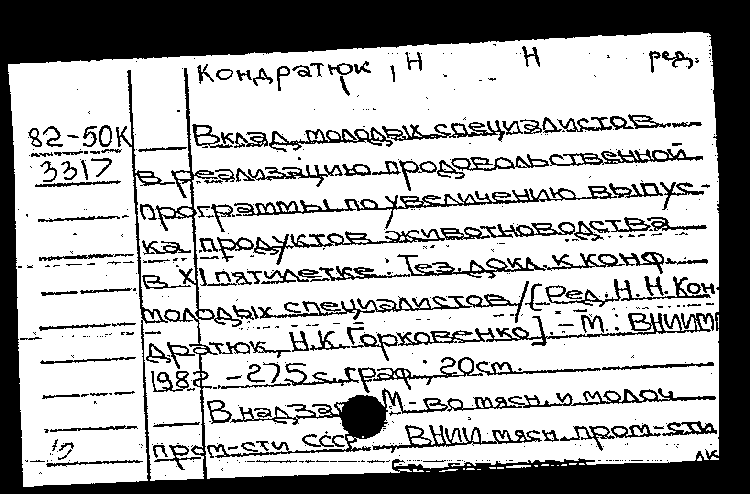 Кондратюк, Н Н ред.
82-50К Вклад молодых специалистов
3317 в реализацию продовольственной
программы по увеличению выпус-
ка продуктов животноводства
в XI пятилетке: Тез. докл. к конф.
молодых специалистов / [Ред. Н.Н. Кон-
дратюк, Н.К. Горковенко]. - М.: ВНИИМП
1982 - 275 с., граф.; 20 см.
В надзаг М-во мясн. и молоч
пром-сти СССР, ВНИИ мясн. пром-сти